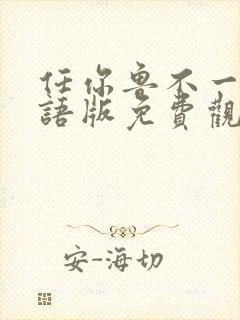 任你鲁不一
語版免費觀
安-海切